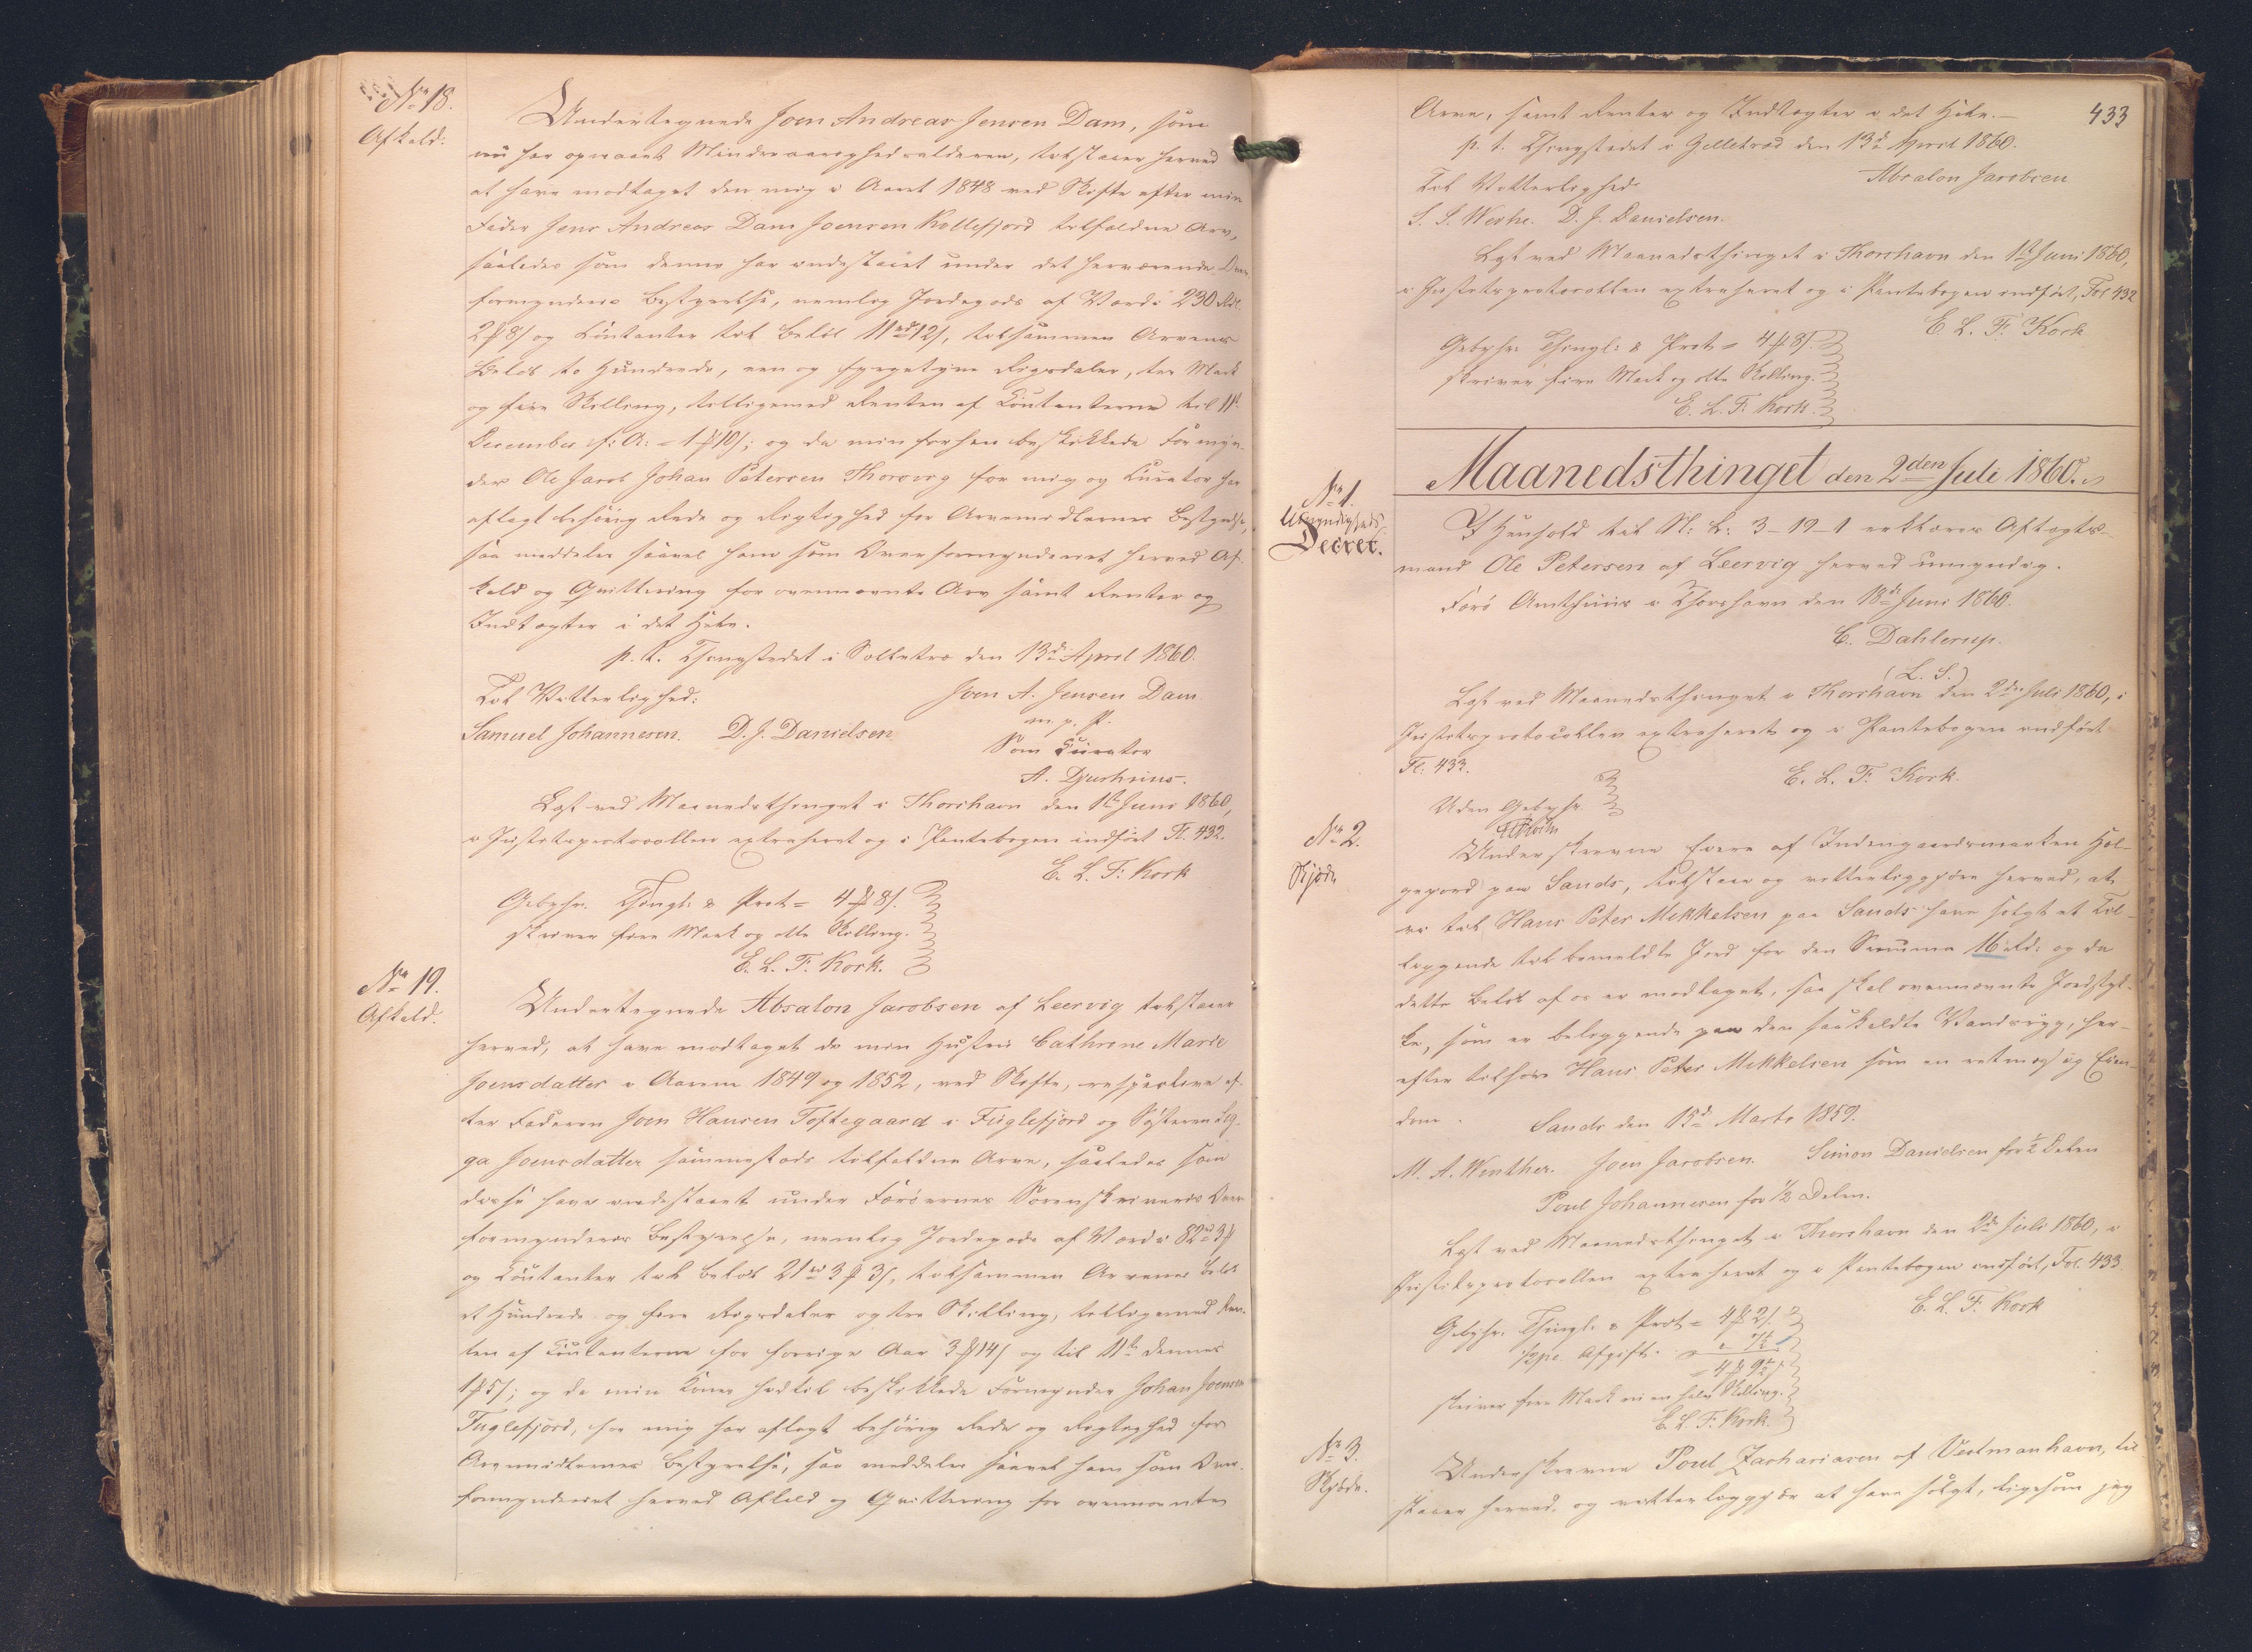 No 18.
Afkald.
Undertegnede Joen Andreas Jensen Dam, som
nu har opnaaet Mindreaarighedsalderen, tilstaaer herved
at have modtaget den mig i Aaret 1848 ved Skifte efter min
Fader Jens Andreas Dam Joensen Kollefjord tilfaldne Arv,
saaledes som denne har indestaaet under det herværende Over-
formynderies Bestyrelse, nemlig Jordegods af Værdi 230 Rd.
2 ℔ 8 ſ og Contanter til Beløb 11 rd 12 ſ, tilsammen Arvens
Beløb to Hundrede, een og fyrgetyve Rigsdaler, tre Mark
og fire Skilling, tilligemed Renten af Contanterne til 11te
December f: A: = 1 ℔ 10 ſ; og da min forhen beskikkede Formyn-
der Ole Jacob Johan Petersen Thorsvig for mig og Curator har
aflagt behørig Rede og Rigtighed for Arvemidlernes Bestyrelse,
saa meddeles saavel ham som Overformynderiet herved Af-
kald og Qvittering for ovennævnte Arv samt Renter og
Indtægter i det Hele.
p. t. Thingstedet i Selletræ den 13de April 1860.
Til Vitterlighed: Joen A. Jensen Dam
Samuel Johannesen. D. J. Danielsen m. p. P.
Som Curator
A. Djurhuus.
Læst ved Maanedsthinget i Thorshavn den 1te Juni 1860,
i Justitsprotocollen extraheret og i Pantebogen indført Fl. 432.
E. L. F. Kock
Gebyhr. Thingl: & Prot = 4 ℔ 8 ſ.
skriver fire Mark og otte Skilling.
E. L. F. Kock.
No 19.
Afkald.
Undertegnede Absalon Jacobsen af Leervig tilstaaer
herved, at have modtaget de min Hustru Cathrine Marie
Joensdatter i Aarene 1849 og 1852, ved Skifte, respective ef-
ter Faderen Joen Hansen Toftegaard i Fuglefjord og Søsteren
ga Joensdatter sammesteds tilfaldne Arve, saaledes som
disse have indestaaet under Færøernes Sorenskriveries Over-
formynderies Bestyrelse, nemlig Jordegods af Værdi 82 rd 3 ℔
og Contanter til Beløb 21 rd 3 ℔ 3 ſ, tilsammen Arvenes Beløb
et Hundrede og fire Rigsdaler og tre Skilling, tilligemed Ren-
ten af Contanterne for forrige Aar 3 ℔ 14 ſ og til 11te dennes
1 ℔ 5 ſ; og da min Kones hidtil beskikkede Formynder Johan Joensen
Fuglefjord, for mig har aflagt behørig Rede og Rigtighed for
Arvemidlernes Bestyrelse, saa meddeles saavel ham som Over-
formynderiet herved Afkald og Qvittering for ovennævnte
433
Arve, samt Renter og Indtægter i det Hele.
p. t. Thingstedet i Selletræd den 13de April 1860.
Til Vitterlighed Absalon Jacobsen
S. S. Weyhe. D. J. Danielsen.
Læst ved Maanedsthinget i Thorshavn den 1te Juni 1860,
i Justitsprotocollen extraheret og i Pantebogen indført, Fol 432
E. L. F. Kock
Gebyhr. Thingl: & Prot = 4 ℔ 8 ſ.
skriver fire Mark og otte Skilling.
E. L. F. Kock.
Maanedsthinget den 2den Juli 1860.
No 1.
Umyndigheds-
Decret.
I Henhold til N: L: 3-19-1 erklæres Aftægts-
mand Ole Petersen af Leervig herved umyndig.
Færø Amthuus i Thorshavn den 18de Juni 1860.
C. Dahlerup.
(L. S.)
Læst ved Maanedsthinget i Thorshavn den 2den Juli 1860, i
Justitsprotocollen extraheret og i Pantebogen indført
Fl: 433.
E. L. F. Kock.
Uden Gebyhr.
No 2.
Skjøde
Underskrevne Eiere af Indengaardsmarken
paa Sands, tilstaae og vitterliggjøre herved, at
vi til Hans Peter Mikkelsen paa Sands have solgt et Til-
liggende til bemeldte Jord for den Summa 16 Rd: og da
dette Beløb af os er modtaget, saa skal ovennævnte Jordstyk-
ke, som er beliggende paa den saakaldte Vandsryg, her-
efter tilhøre Hans Peter Mikkelsen som en retmæssig Eien-
dom. Sands den 15de Marts 1859.
M. A. Winther. Joen Jacobsen. Simon Danielsen for 1/2 Delen
Poul Johannesen for 1/2 Delen.
Læst ved Maanedsthinget i Thorshavn den 2den Juli 1860, i
Justitsprotocollen extraheret og i Pantebogen indført, Fol. 433
E. L. F. Kock
Gebyhr. Thingl. & Prot = 4 ℔ 2 ſ.
1/2 pc. Afgift = " 7 1/2
= 4 ℔ 9 1/2 ſ
skriver fire Mark ni en halv Skilling.
E. L. F. Kock.
No 3.
Skjøde.
Underskrevne Poul Zachariasen af Vestmanhavn, til-
staaer herved og vitterliggjør at have solgt, ligesom jeg